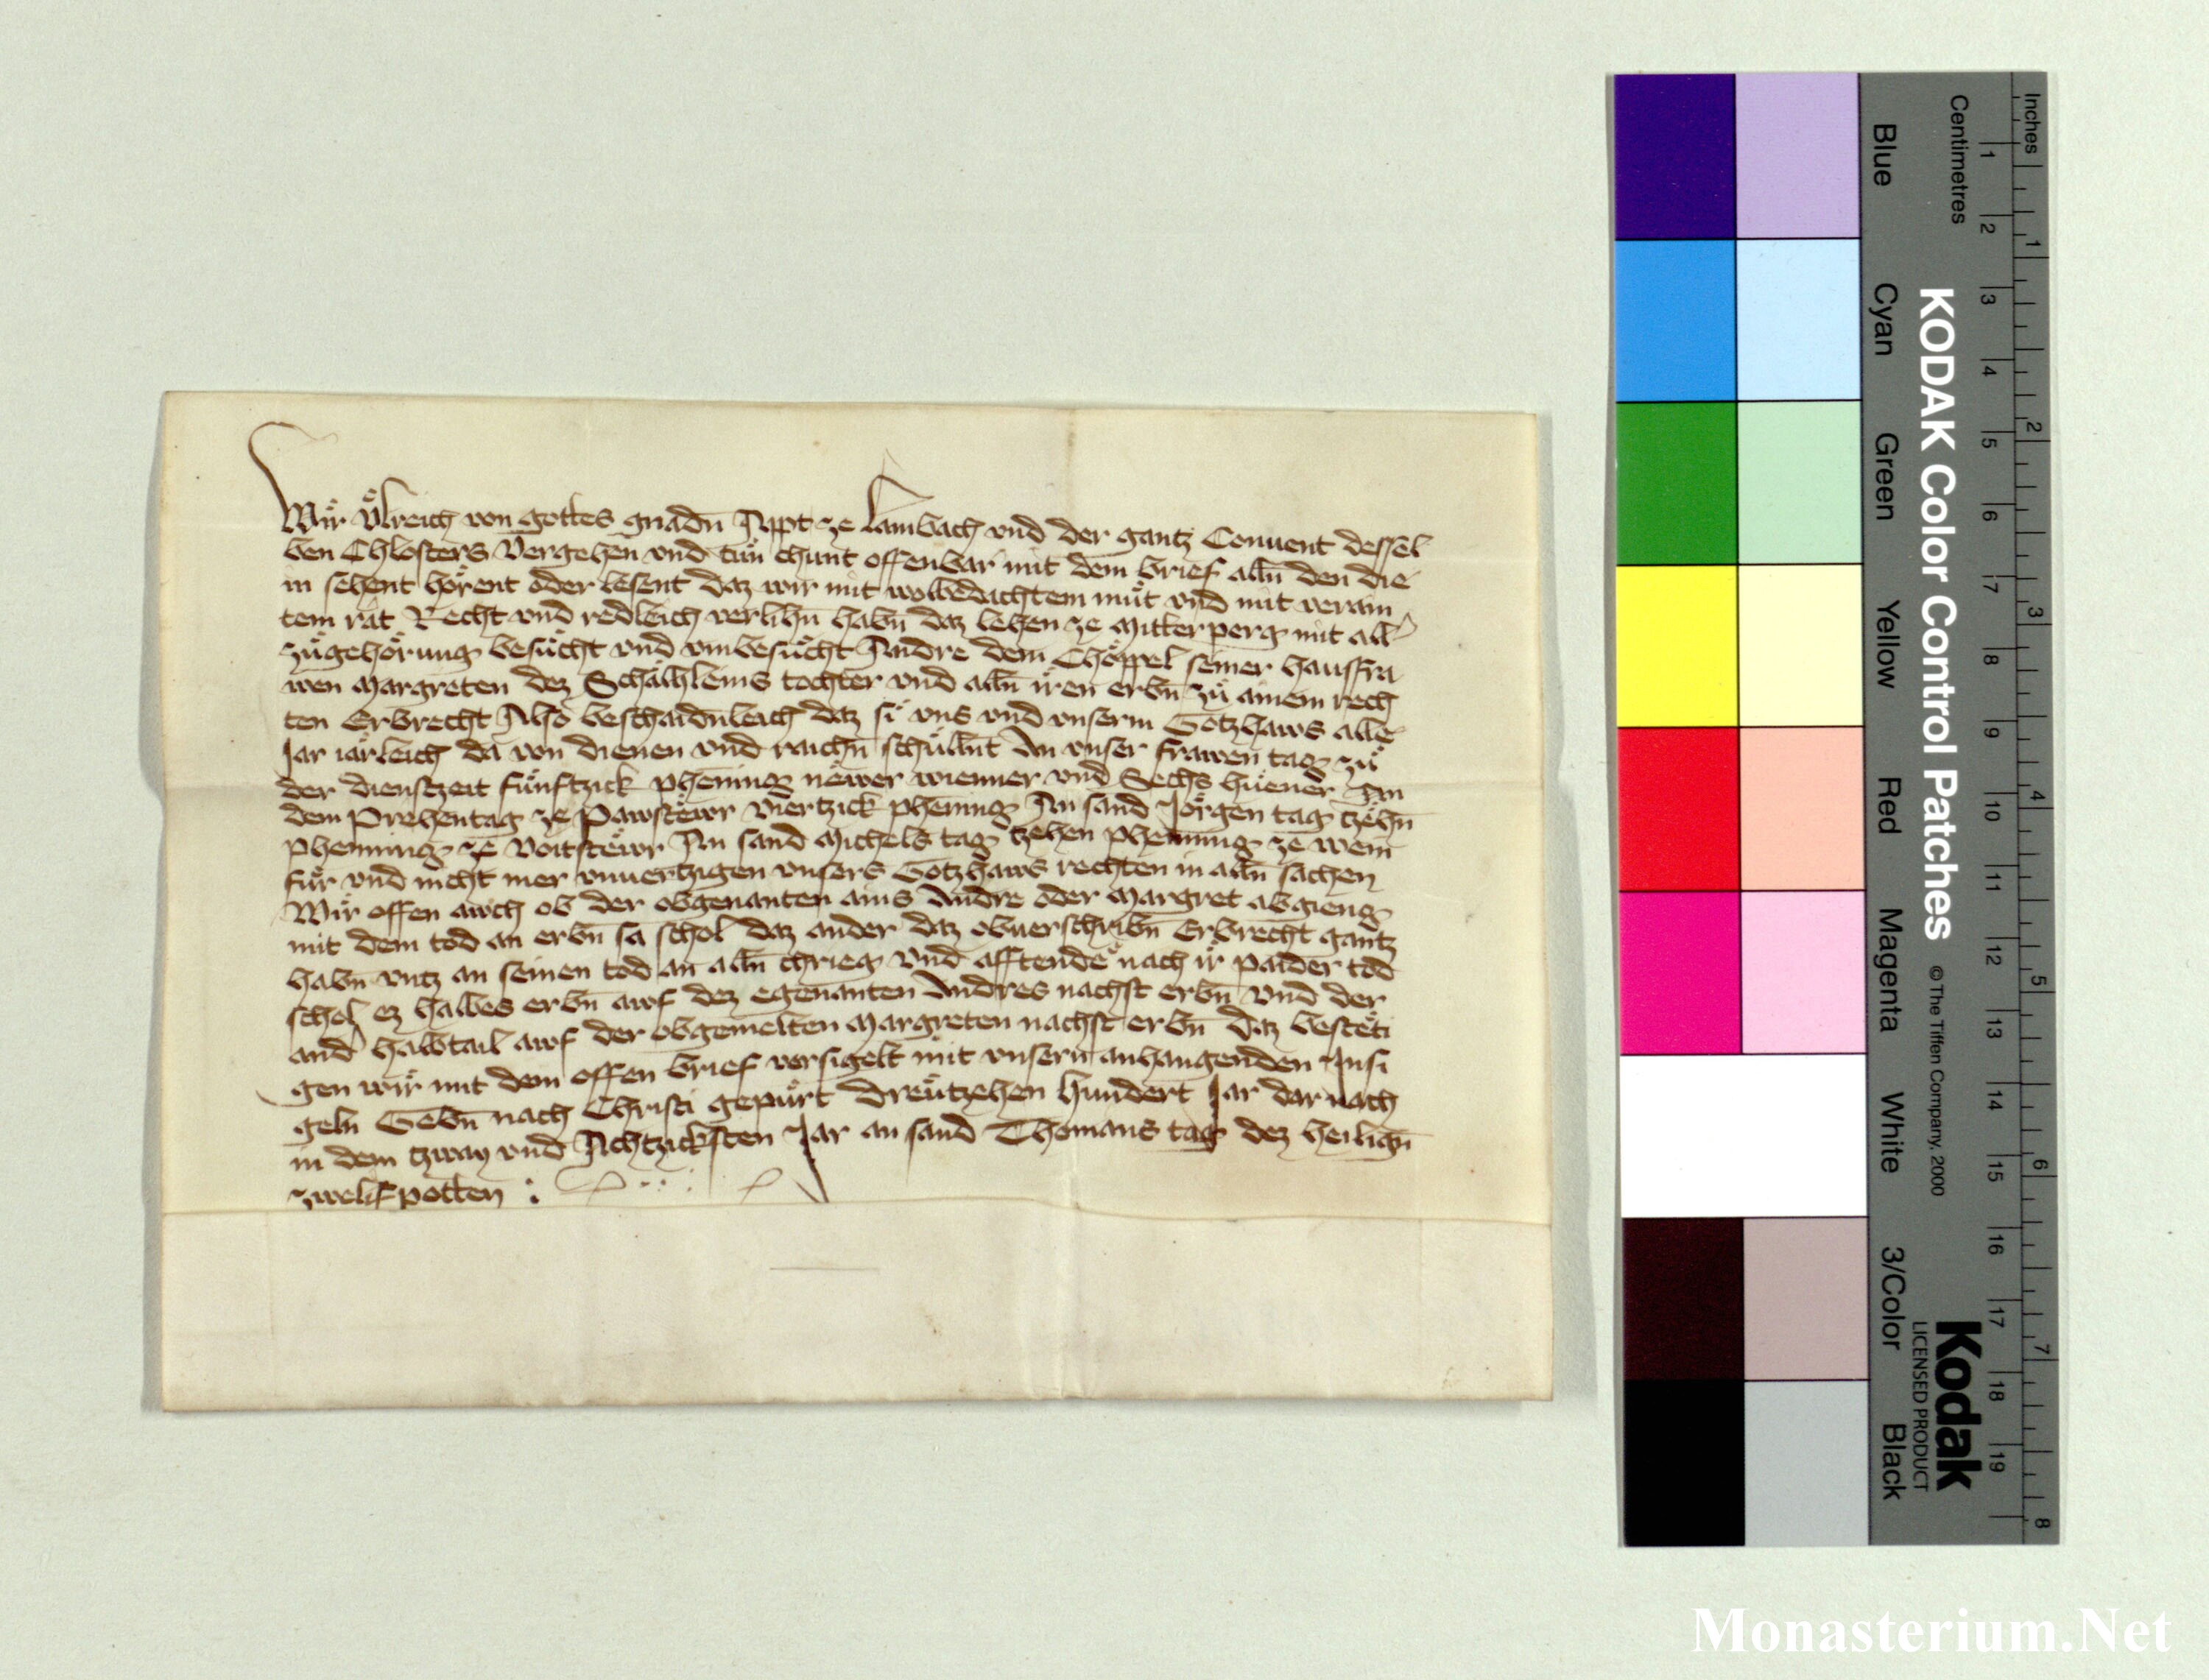 Wir Ulreich von gottes gnadn̄ Appt ze Lambach vnd der gantz Conuent dessel
ben Chlosters Vergehen vnd tün chunt offenbar mit dem brief alln̄ den die
in sehent hörent oder lesent daz wir mit wolbedachtem müt vnd mit verain
tem rat Recht vnd redleich verlihn̄ habn̄ daz lehen ze Mitterperg mit all
zügehörung besücht vnd vmbesücht Andre dem Chöppel seiner hausfra
wen Margreten dez Schälhleins tochter vnd alln̄ iren erbn̄ zü ainem rech
ten Erbrecht Also beschaidn̄leich daz si vns vnd vnserm Gotzhaws alle
Jar iärleich da von dienen vnd raichn̄ schülln̄t An vnser frawen tag zü
der dienstzeit fünftzick phening newer wienner vnd Sechs hüener An
dem Prehentag ze Pawstewr viertzick phening An sand Jörgen tag tzehn̄
phenning ze Voitstewr An sand Michels tag tzehen phenning ze wein
für vnd nicht mer vnuertzigen vnsers Gotzhaws rechten in alln̄ sachen
Wir offen awch ob der obgenanten ains Andre oder Margret abgieng
mit dem tod an erbn̄ sa schol daz ander daz obuerschribn̄ Erbrecht gantz
habn̄ vntz an seinen tod an alln̄ chrieg vnd afftende nach ir paider tod
schol ez halbes erbn̄ awf dez egenanten Andres nachst erbn̄ vnd der
and halbtail awf der obgemelten Margreten nachst erbn̄ daz bestëti
gen wir mit dem offen brief versigelt mit vnsern anhangenden Insi
geln Gebn̄ nach Christi gepürt Dreützehen hundert Jar dar nach
in dem tzway vnd Achtzicksten Jar an sand Thomans tag dez heilign̄
zwelifpotten :
Inches
Centimetres
1 2 3 4 5 6 7 8
1 2 3 4 5 6 7 8 9 10 11 12 13 14 15 16 17 18 19
KODAK Color Control Patches © The Tiffen Company, 2000
Kodak
LICENSED PRODUCT
Blue Cyan Green Yellow Red Magenta White 3/Color Black
Monasterium.Net